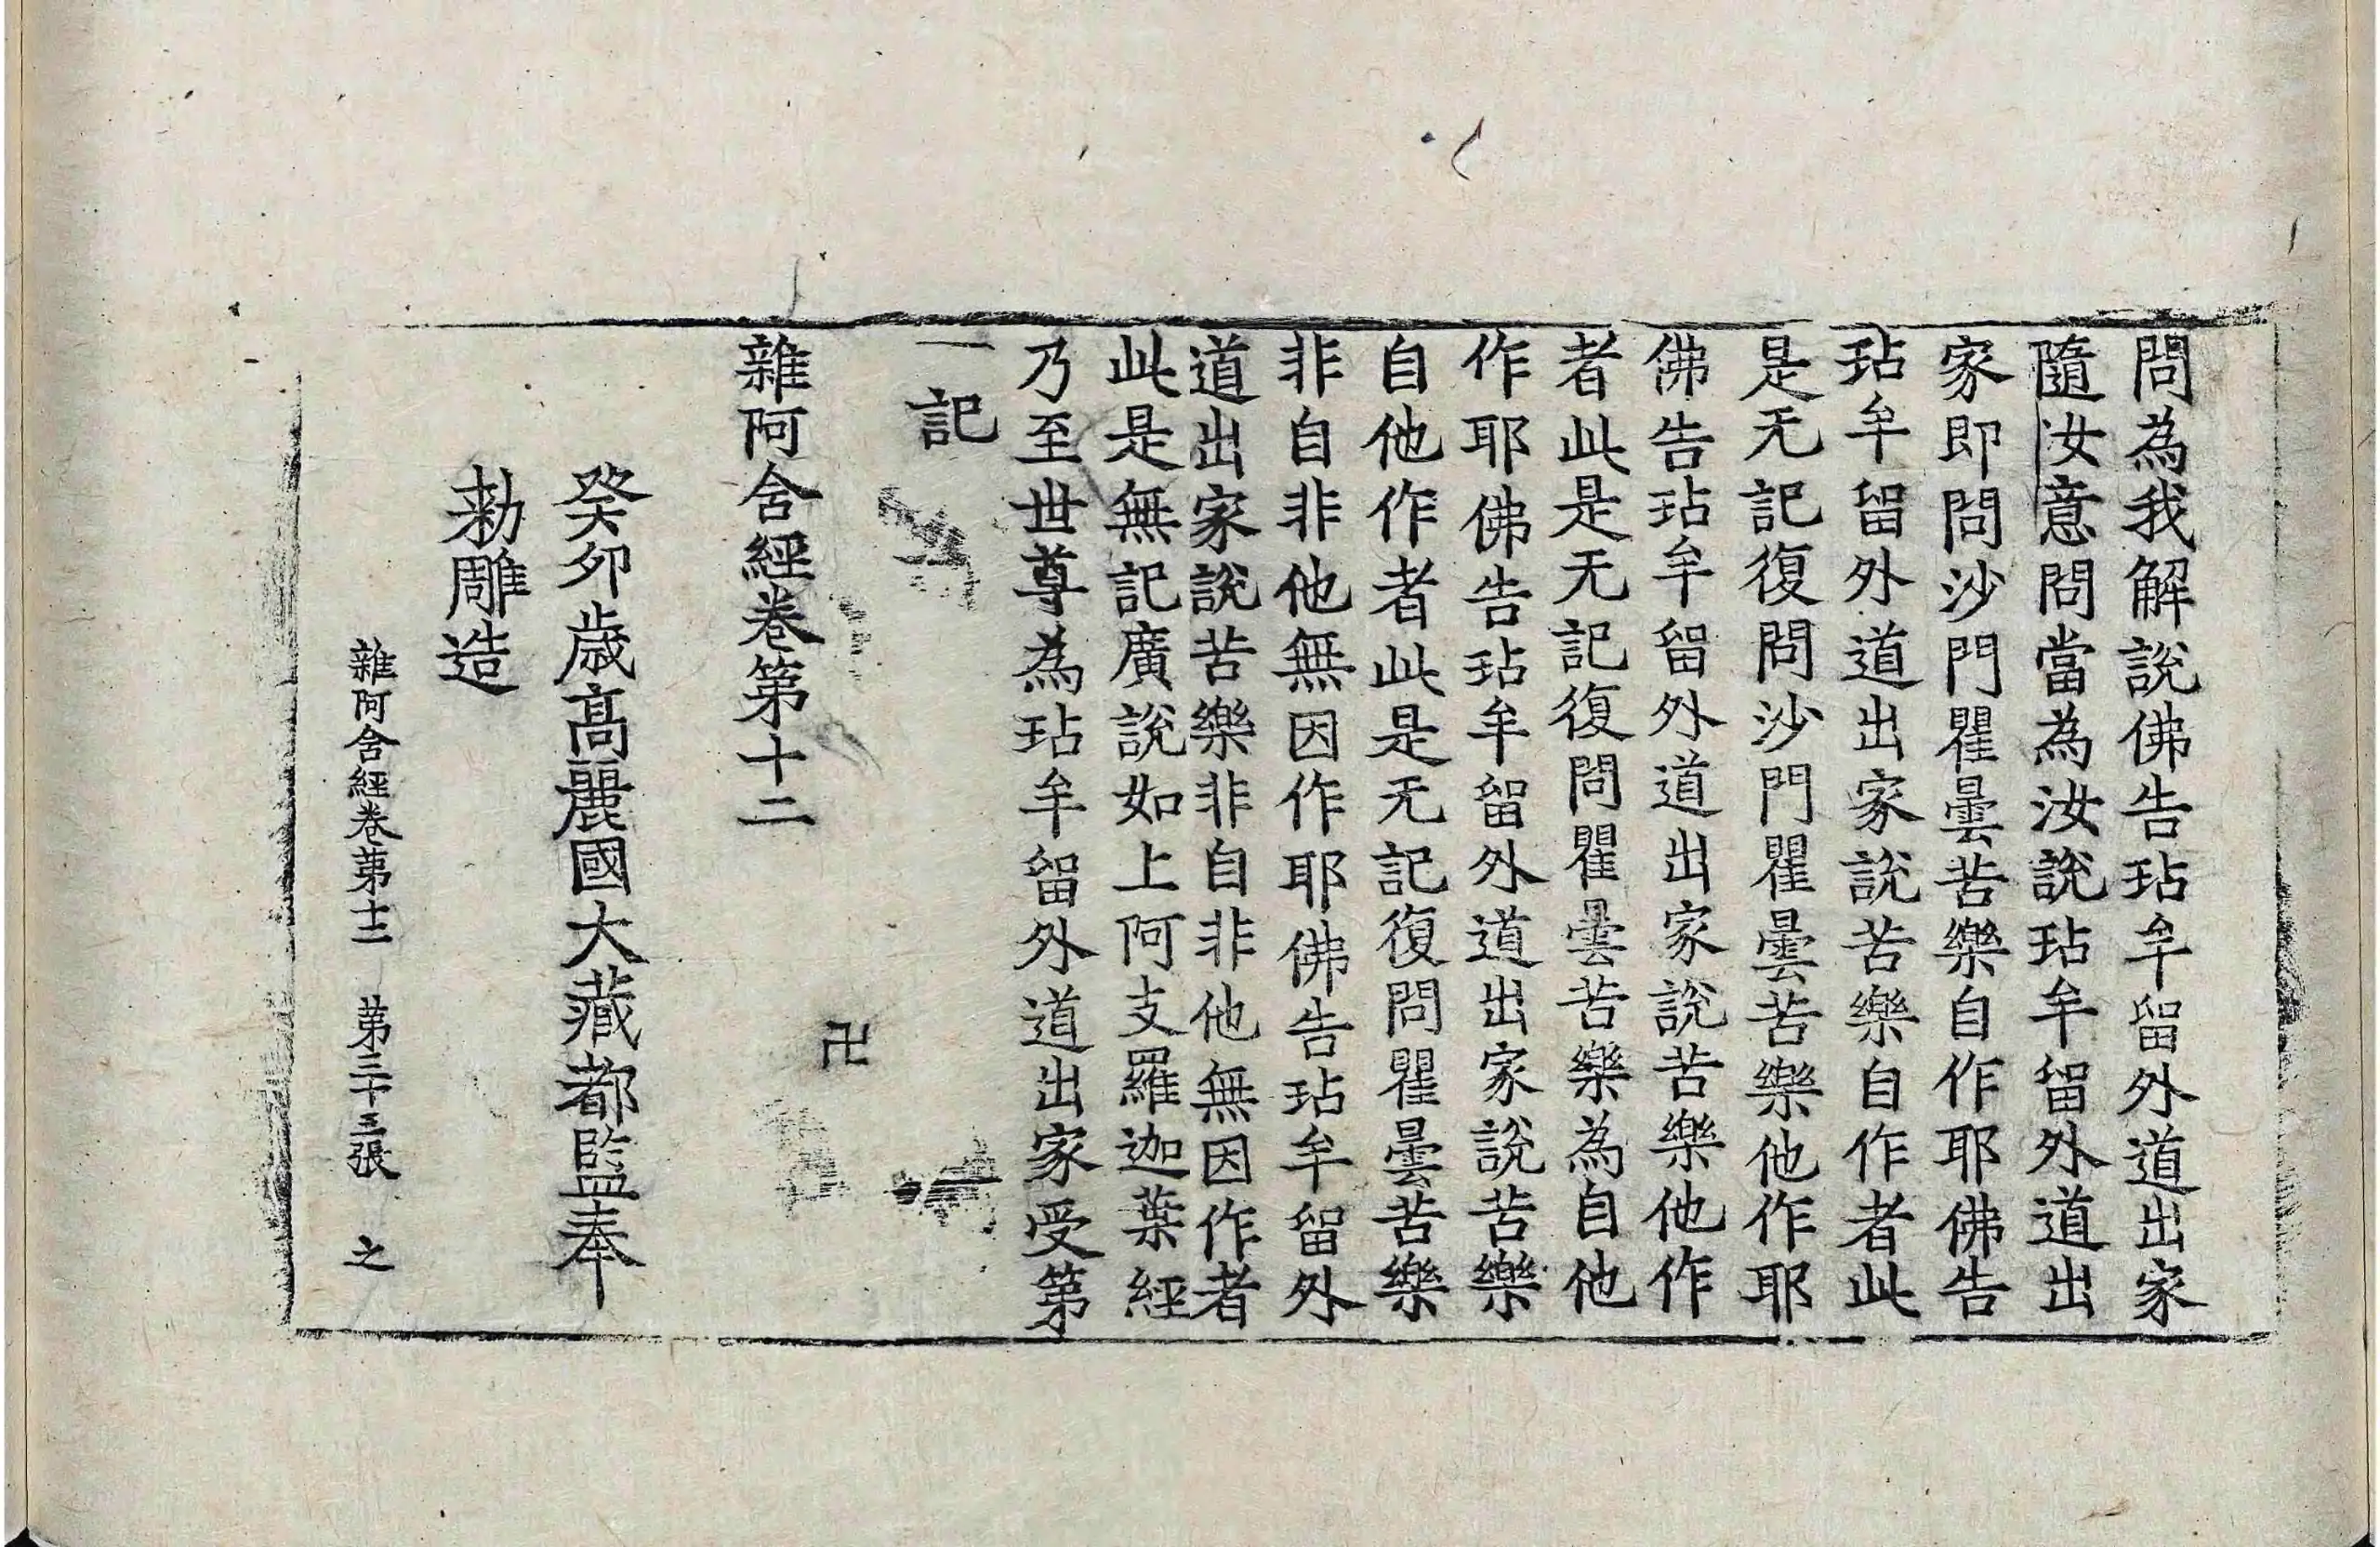 問為我解說佛告玷牟留外道出家
隨汝意問當為汝說玷牟留外道出
家即問沙門瞿曇苦樂自作耶佛告
玷牟留外道出家說苦樂自作者此
是无記復問沙門瞿曇苦樂他作耶
佛告玷牟留外道出家說苦樂他作
者此是无記復問瞿曇苦樂為自他
作耶佛告玷牟留外道出家說苦樂
自他作者此是无記復問瞿曇苦樂
非自非他無因作耶佛告玷牟留外
道出家說苦樂非自非他無因作者
此是無記廣說如上阿支羅迦葉經
乃至世尊為玷牟留外道出家受第
一記
卍
雜阿含經卷第十二
癸卯歲高麗國大藏都監奉
勅雕造
雜阿含經卷第十二 第三十三張 之